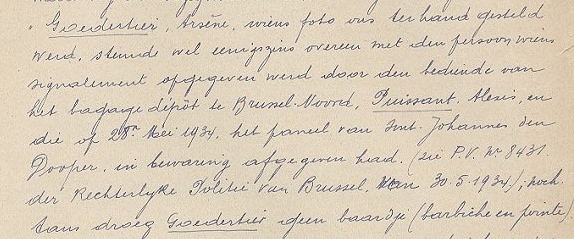 " Goedertier, Arsène, wiens foto ons ter hand gesteld
werd, stemde wel eenigszins overeen met den persoon wiens
signalement opgegeven werd door den bediende van
het bagage dépôt te Brussel-Noord, Puissant, Alexis, en
die op 28n Mei 1934, het paneel van Sint. Johannes den
Dooper, in bewaring afgegeven had. (zie P.V. Nr 8431
der Rechterlijke Politie van Brussel, van 30.5.1934); noch-
tans droeg Goedertier geen baardje (barbiche en pointe)